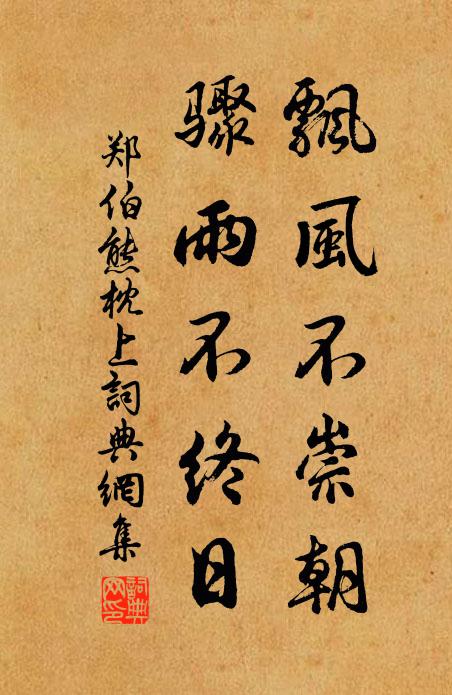 飄風不崇朝
骤雨不终日
郑伯熊枕上詞典網集
詞典网印